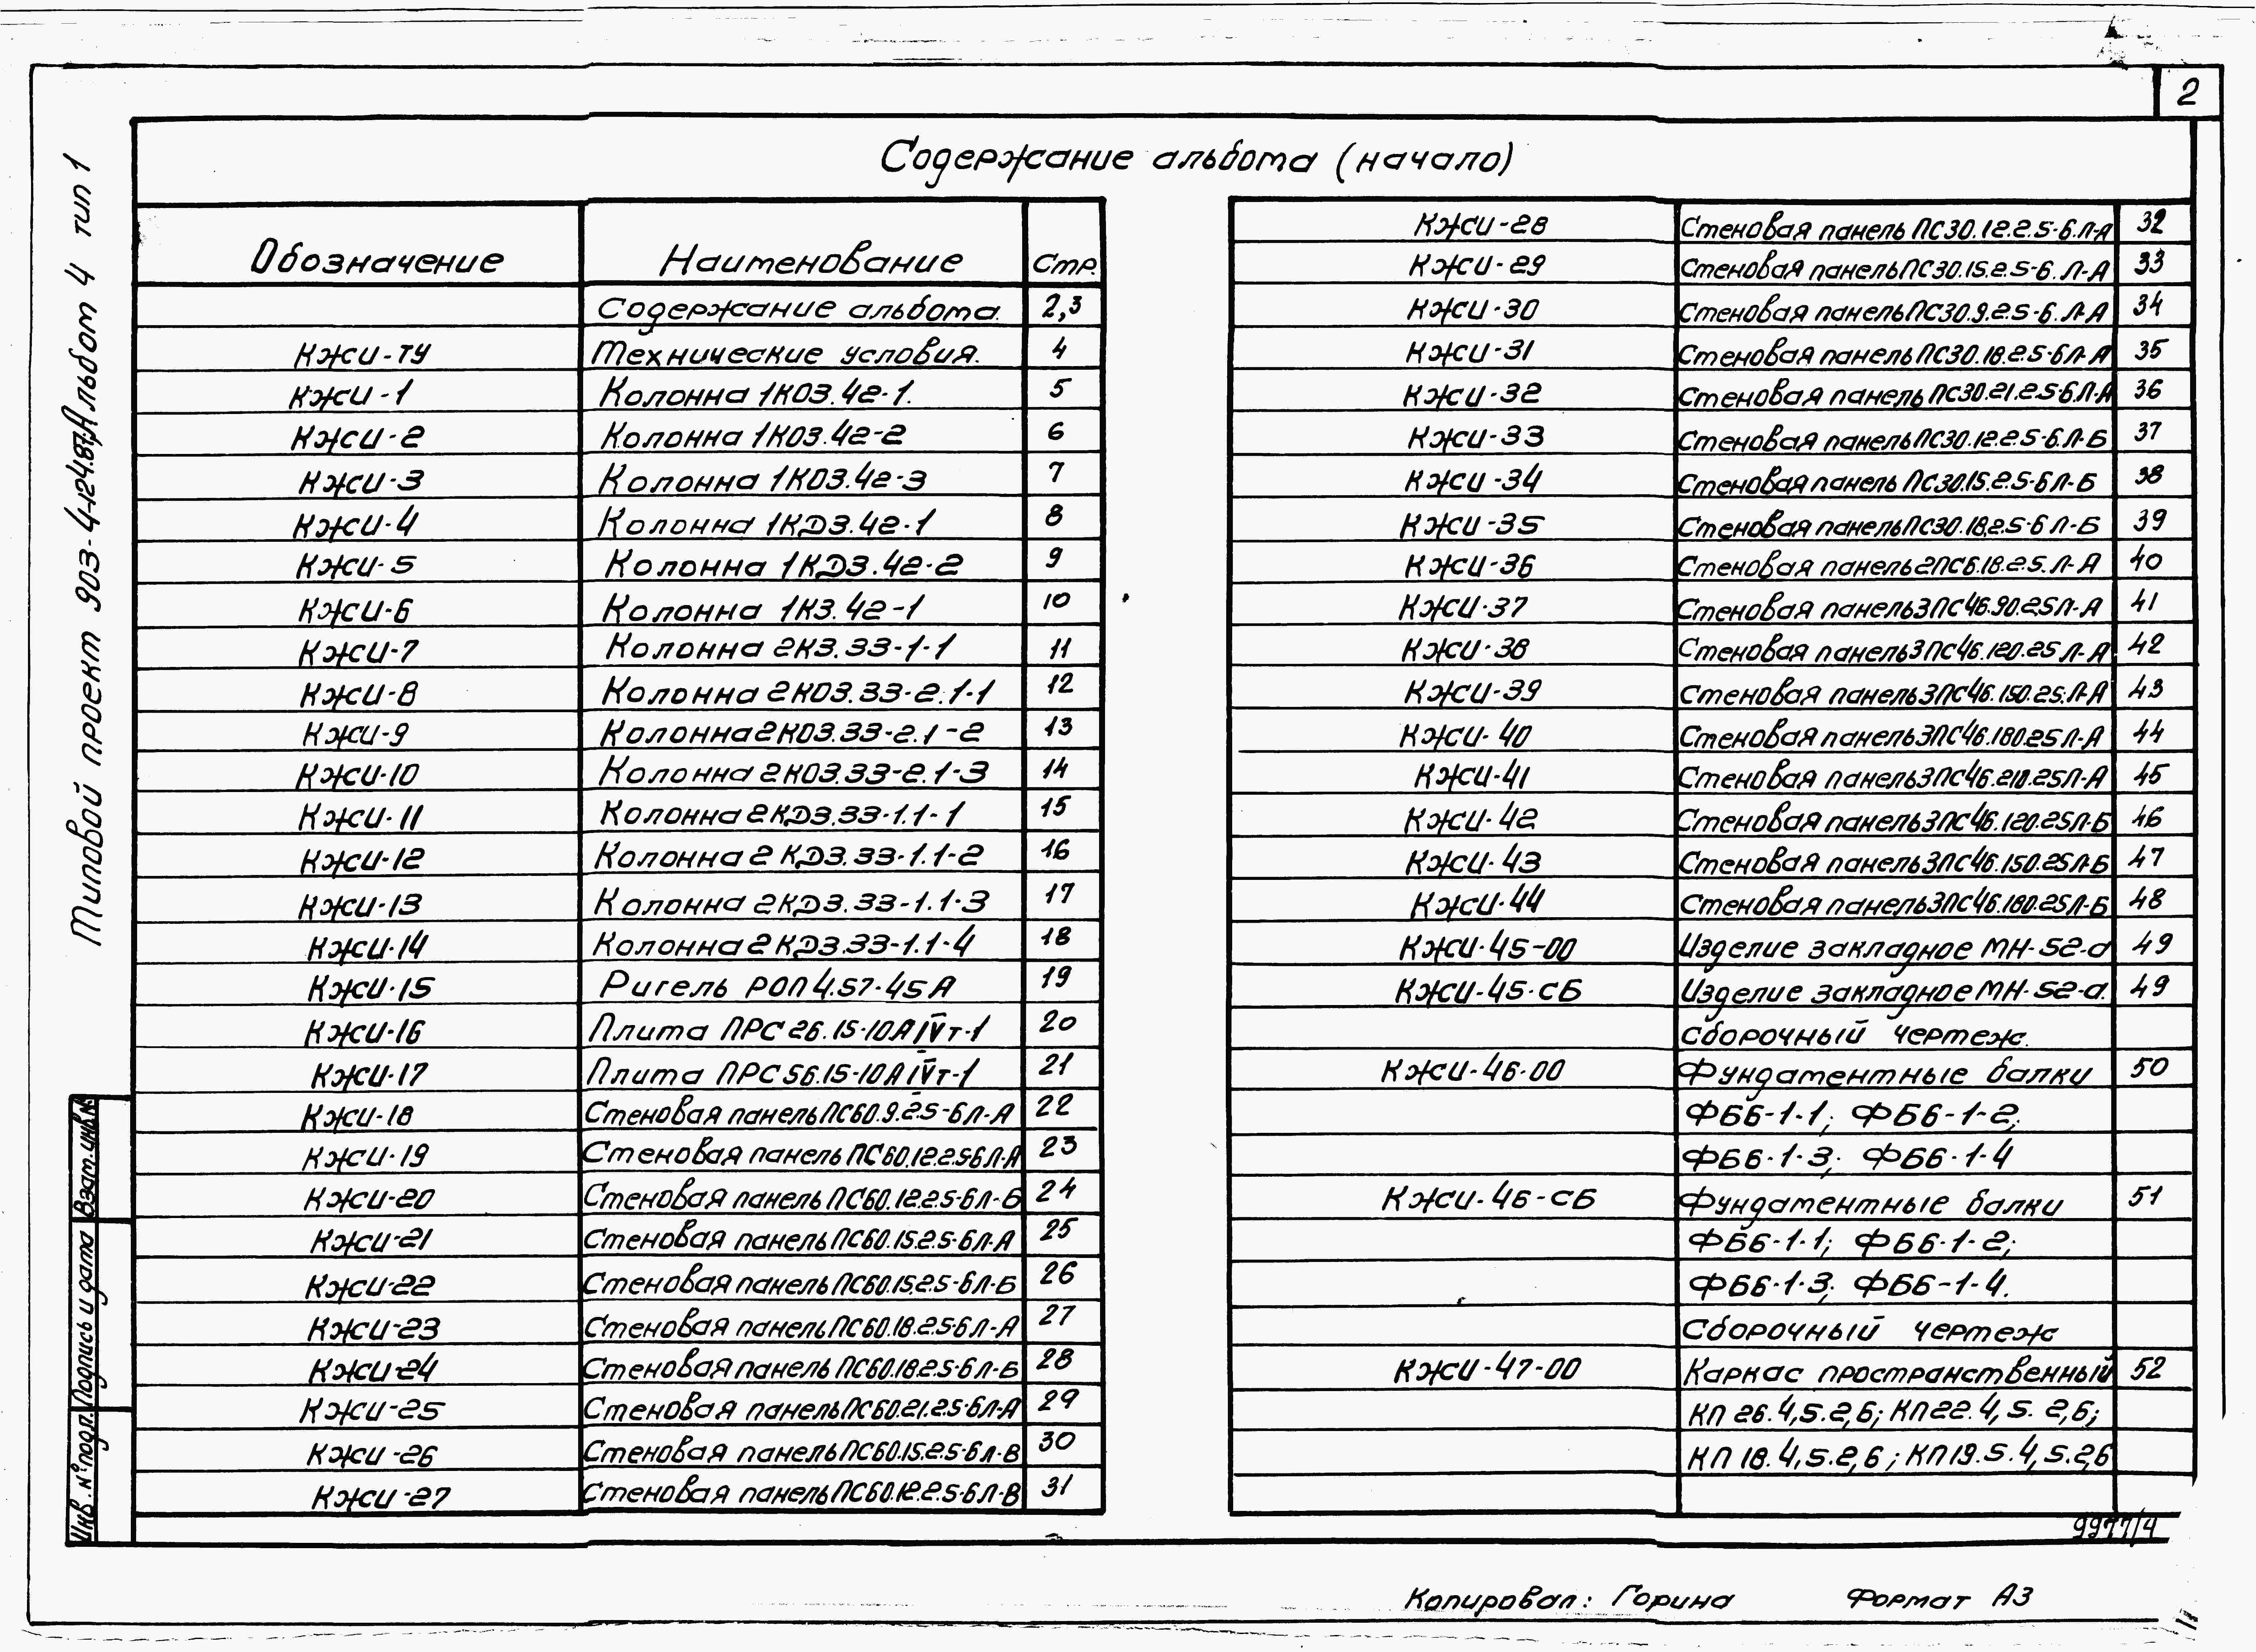 2
Содержание альбома (начало)
Типовой проект 903-4-124.87 Альбом 4 тип 1
Обозначение Наименование Стр.
Содержание альбома. 2,3
КЖИ-ТУ Технические условия. 4
КЖИ-1 Колонна 1КО3.42-1. 5
КЖИ-2 Колонна 1КО3.42-2 6
КЖИ-3 Колонна 1КО3.42-3 7
КЖИ-4 Колонна 1КД3.42-1 8
КЖИ-5 Колонна 1КД3.42-2 9
КЖИ-6 Колонна 1К3.42-1 10
КЖИ-7 Колонна 2К3.33-1-1 11
КЖИ-8 Колонна 2КО3.33-2.1-1 12
КЖИ-9 Колонна 2КО3.33-2.1-2 13
КЖИ-10 Колонна 2КО3.33-2.1-3 14
КЖИ-11 Колонна 2КД3.33-1.1-1 15
КЖИ-12 Колонна 2КД3.33-1.1-2 16
КЖИ-13 Колонна 2КД3.33-1.1-3 17
КЖИ-14 Колонна 2КД3.33-1.1-4 18
КЖИ-15 Ригель РОП4.57-45А 19
КЖИ-16 Плита ПРС26.15-10АIVт-1 20
КЖИ-17 Плита ПРС56.15-10АIVт-1 21
КЖИ-18 Стеновая панель ПС60.9.2.5-6Л-А 22
КЖИ-19 Стеновая панель ПС60.12.2.5-6Л-А 23
КЖИ-20 Стеновая панель ПС60.12.2.5-6Л-Б 24
КЖИ-21 Стеновая панель ПС60.15.2.5-6Л-А 25
КЖИ-22 Стеновая панель ПС60.15.2.5-6Л-Б 26
КЖИ-23 Стеновая панель ПС60.18.2.5-6Л-А 27
КЖИ-24 Стеновая панель ПС60.18.2.5-6Л-Б 28
КЖИ-25 Стеновая панель ПС60.21.2.5-6Л-А 29
КЖИ-26 Стеновая панель ПС60.15.2.5-6Л-В 30
КЖИ-27 Стеновая панель ПС60.12.2.5-6Л-В 31
КЖИ-28 Стеновая панель ПС30.12.2.5-6.Л-А 32
КЖИ-29 Стеновая панель ПС30.15.2.5-6.Л-А 33
КЖИ-30 Стеновая панель ПС30.9.2.5-6.Л-А 34
КЖИ-31 Стеновая панель ПС30.18.2.5-6Л-А 35
КЖИ-32 Стеновая панель ПС30.21.2.5-6Л-А 36
КЖИ-33 Стеновая панель ПС30.12.2.5-6.Л-Б 37
КЖИ-34 Стеновая панель ПС30.15.2.5-6Л-Б 38
КЖИ-35 Стеновая панель ПС30.18.2.5-6Л-Б 39
КЖИ-36 Стеновая панель 2ПС6.18.2.5.Л-А 40
КЖИ-37 Стеновая панель 3ПС46.90.25Л-А 41
КЖИ-38 Стеновая панель 3ПС46.120.25Л-А 42
КЖИ-39 Стеновая панель 3ПС46.150.25.Л-А 43
КЖИ-40 Стеновая панель 3ПС46.180.25Л-А 44
КЖИ-41 Стеновая панель 3ПС46.210.25Л-А 45
КЖИ-42 Стеновая панель 3ПС46.120.25Л-Б 46
КЖИ-43 Стеновая панель 3ПС46.150.25Л-Б 47
КЖИ-44 Стеновая панель 3ПС46.180.25Л-Б 48
КЖИ-45-00 Изделие закладное МН-52-а 49
КЖИ-45-СБ Изделие закладное МН-52-а. 49
Сборочный чертеж.
КЖИ-46-00 Фундаментные балки 50
ФБ6-1-1; ФБ6-1-2;
ФБ6-1-3; ФБ6-1-4
КЖИ-46-СБ Фундаментные балки 51
ФБ6-1-1; ФБ6-1-2;
ФБ6-1-3; ФБ6-1-4.
Сборочный чертеж
КЖИ-47-00 Каркас пространственный 52
КП26.4,5.2,6; КП22.4,5.2,6;
КП18.4,5.2,6; КП19.5.4,5.2,6
Взам.инв.№
Подпись и дата
Инв.№подл.
9977/4
Копировал: Горина Формат А3